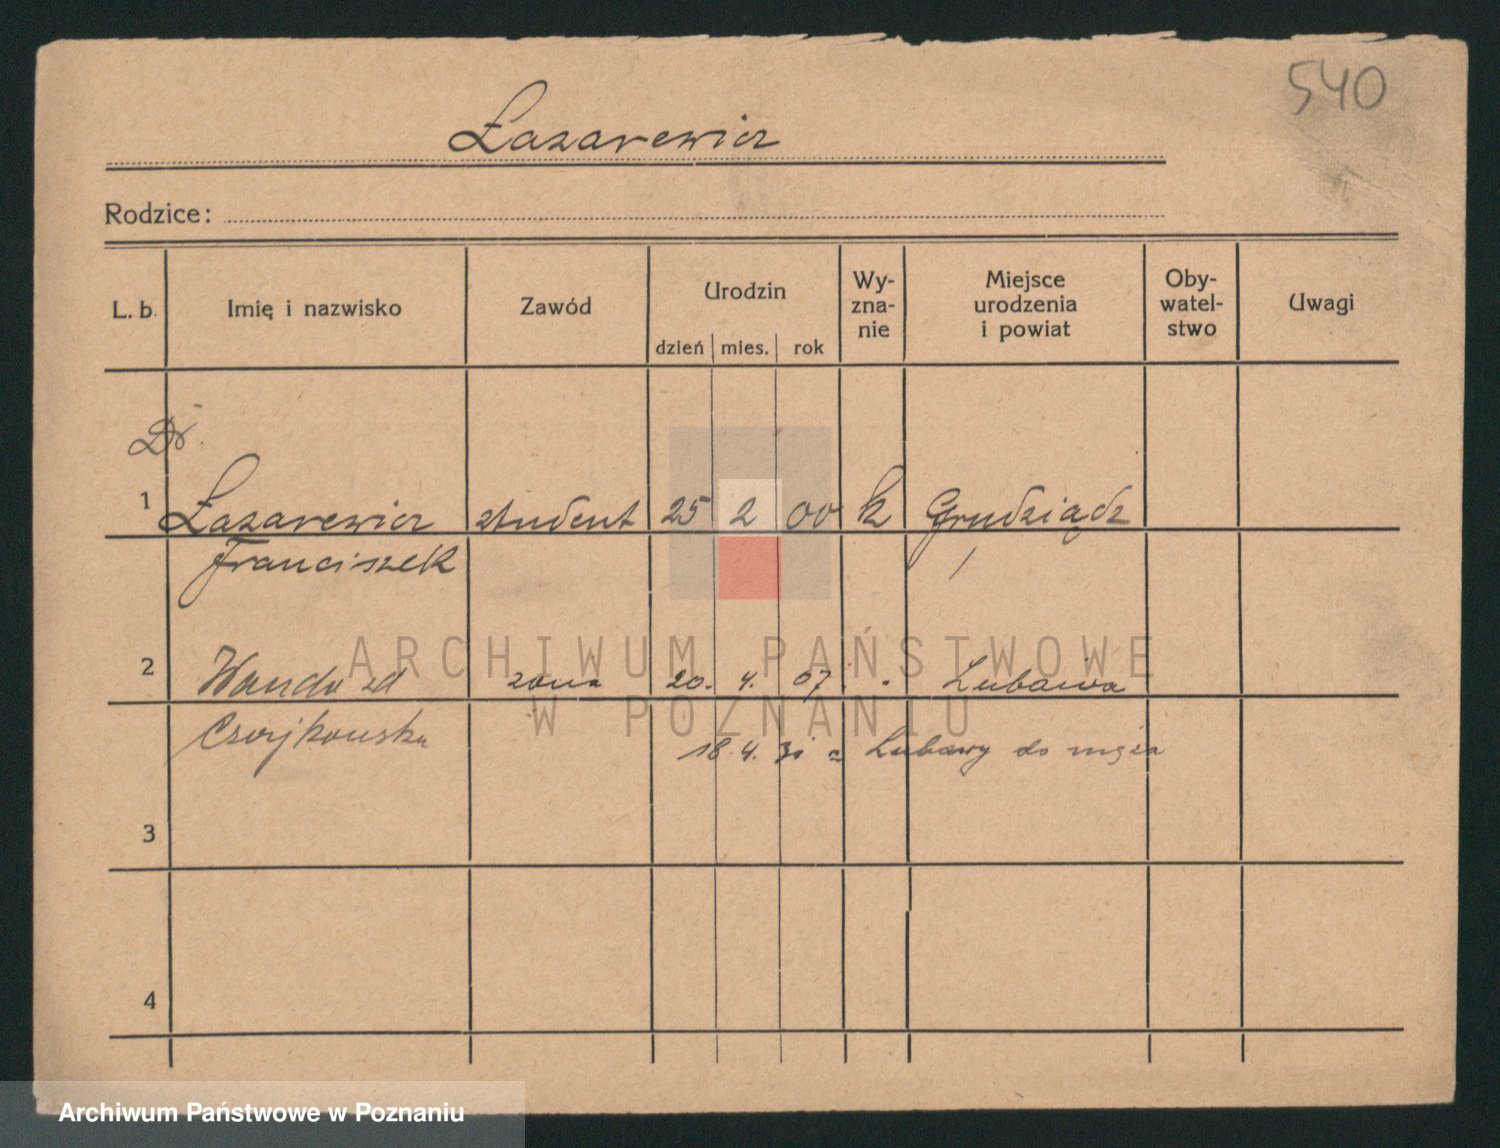 540
Łazarewicz
Rodzice:
L. b. Imię i nazwisko Zawód Urodzin Wy-zna-nie Miejsce urodzenia i powiat Oby-watel-stwo Uwagi
dzień mies. rok
Dr.
1 Łazarewicz student 25 2 00 k Grudziądz
Franciszek
2 Wanda zd żona 20. 4. 07 Lubawa
18.4.31 z Lubawy do męża
3
4
ARCHIWUM PAŃSTWOWE
W POZNANIU
Archiwum Państwowe w Poznaniu